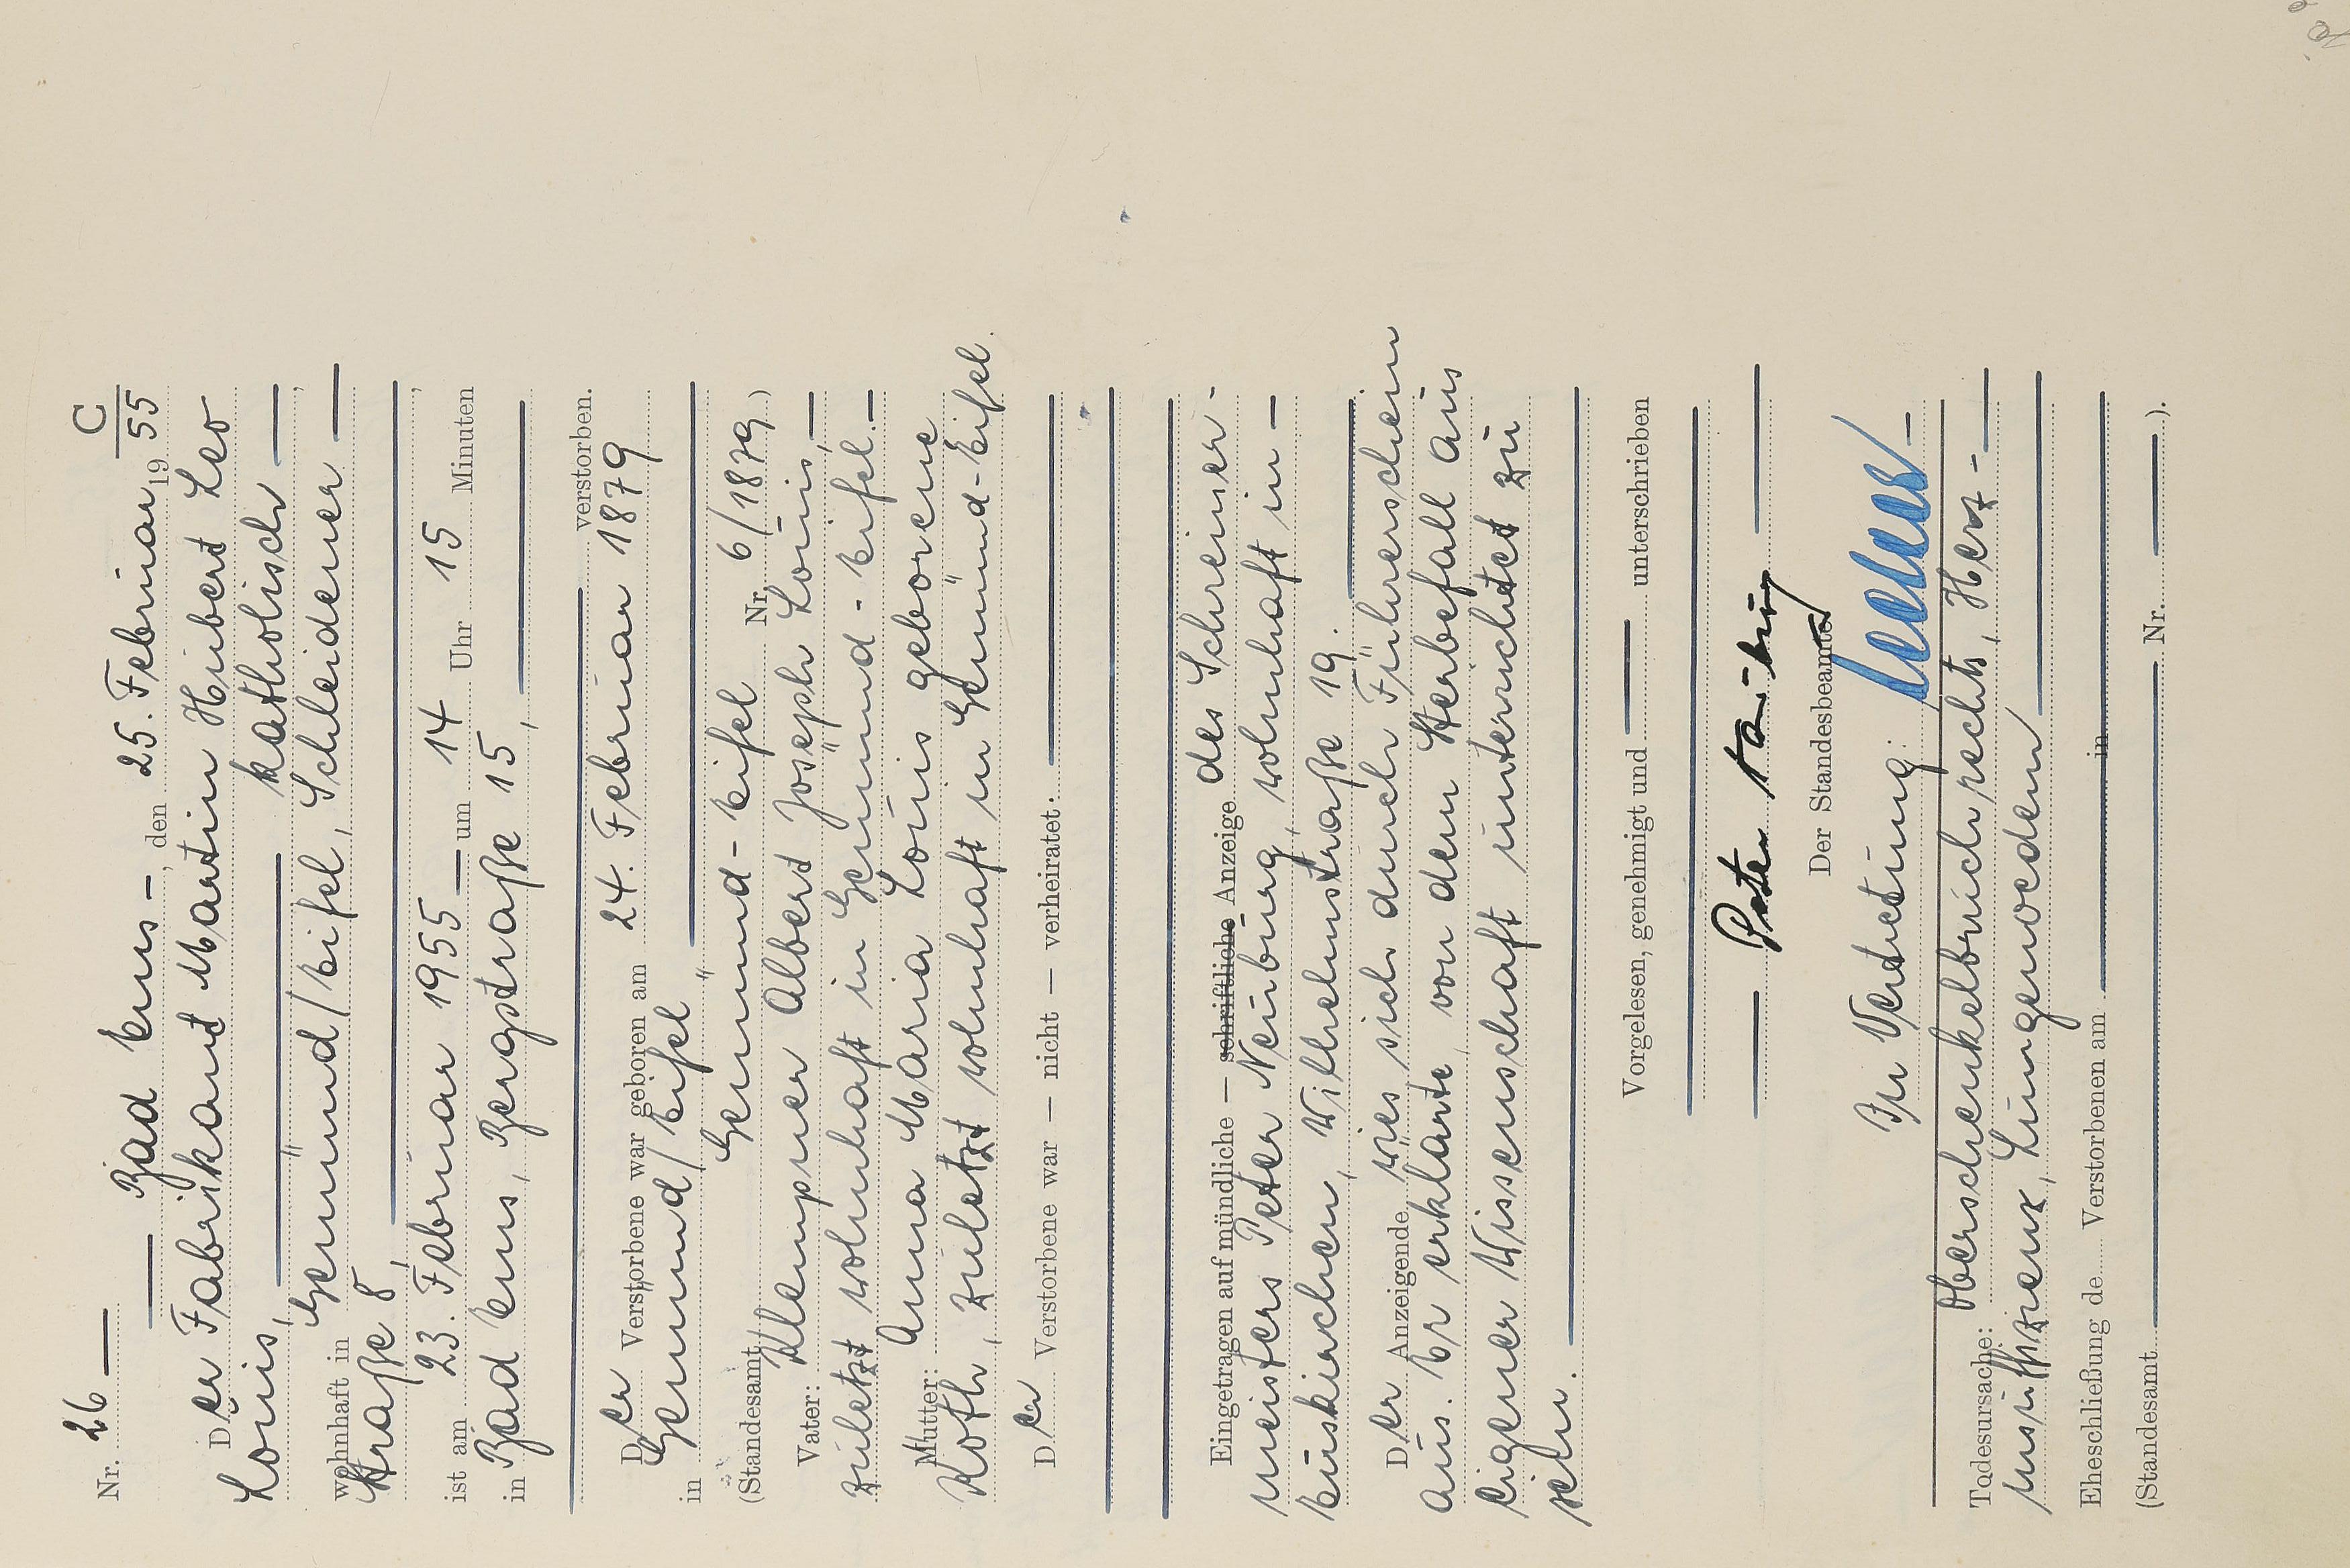 C
Nr. 26 —
— Bad Ems —, den 25. Februar 1955
Der Fabrikant Martin Hubert Leo
Louis, — katholisch —,
wohnhaft in Gemünd/Eifel, Schleidener —
Straße 8, —,
ist am 23. Februar 1955 — um 14 Uhr 15 Minuten
in Bad Ems, Bergstraße 15, —
— verstorben.
Der Verstorbene war geboren am 24. Februar 1879
in Gemünd/Eifel —
(Standesamt Gemünd-Eifel Nr. 6/1879.)
Vater: Klempner Albert Joseph Louis, —
zuletzt wohnhaft in Gemünd-Eifel. —
Mutter: Anna Maria Louis geborene
Roth, zuletzt wohnhaft in Gemünd-Eifel.
Der Verstorbene war — nicht — verheiratet. —
Eingetragen auf mündliche — schriftliche Anzeige des Schreiner-
meisters Peter Neuburg, wohnhaft in —
Euskirchen, Wilhelmstraße 19. —
Der Anzeigende wies sich durch Führerschein
aus. Er erklärte, von dem Sterbefall aus
eigener Wissenschaft unterrichtet zu
sein. —
Vorgelesen, genehmigt und — unterschrieben
— Peter —
Der Standesbeamte
In Vertretung: —
Todesursache: Oberschenkelbruch rechts, Herz- —
insuffizienz, Lungenoedem —
Eheschließung de Verstorbenen am — in —
(Standesamt — Nr. — ).